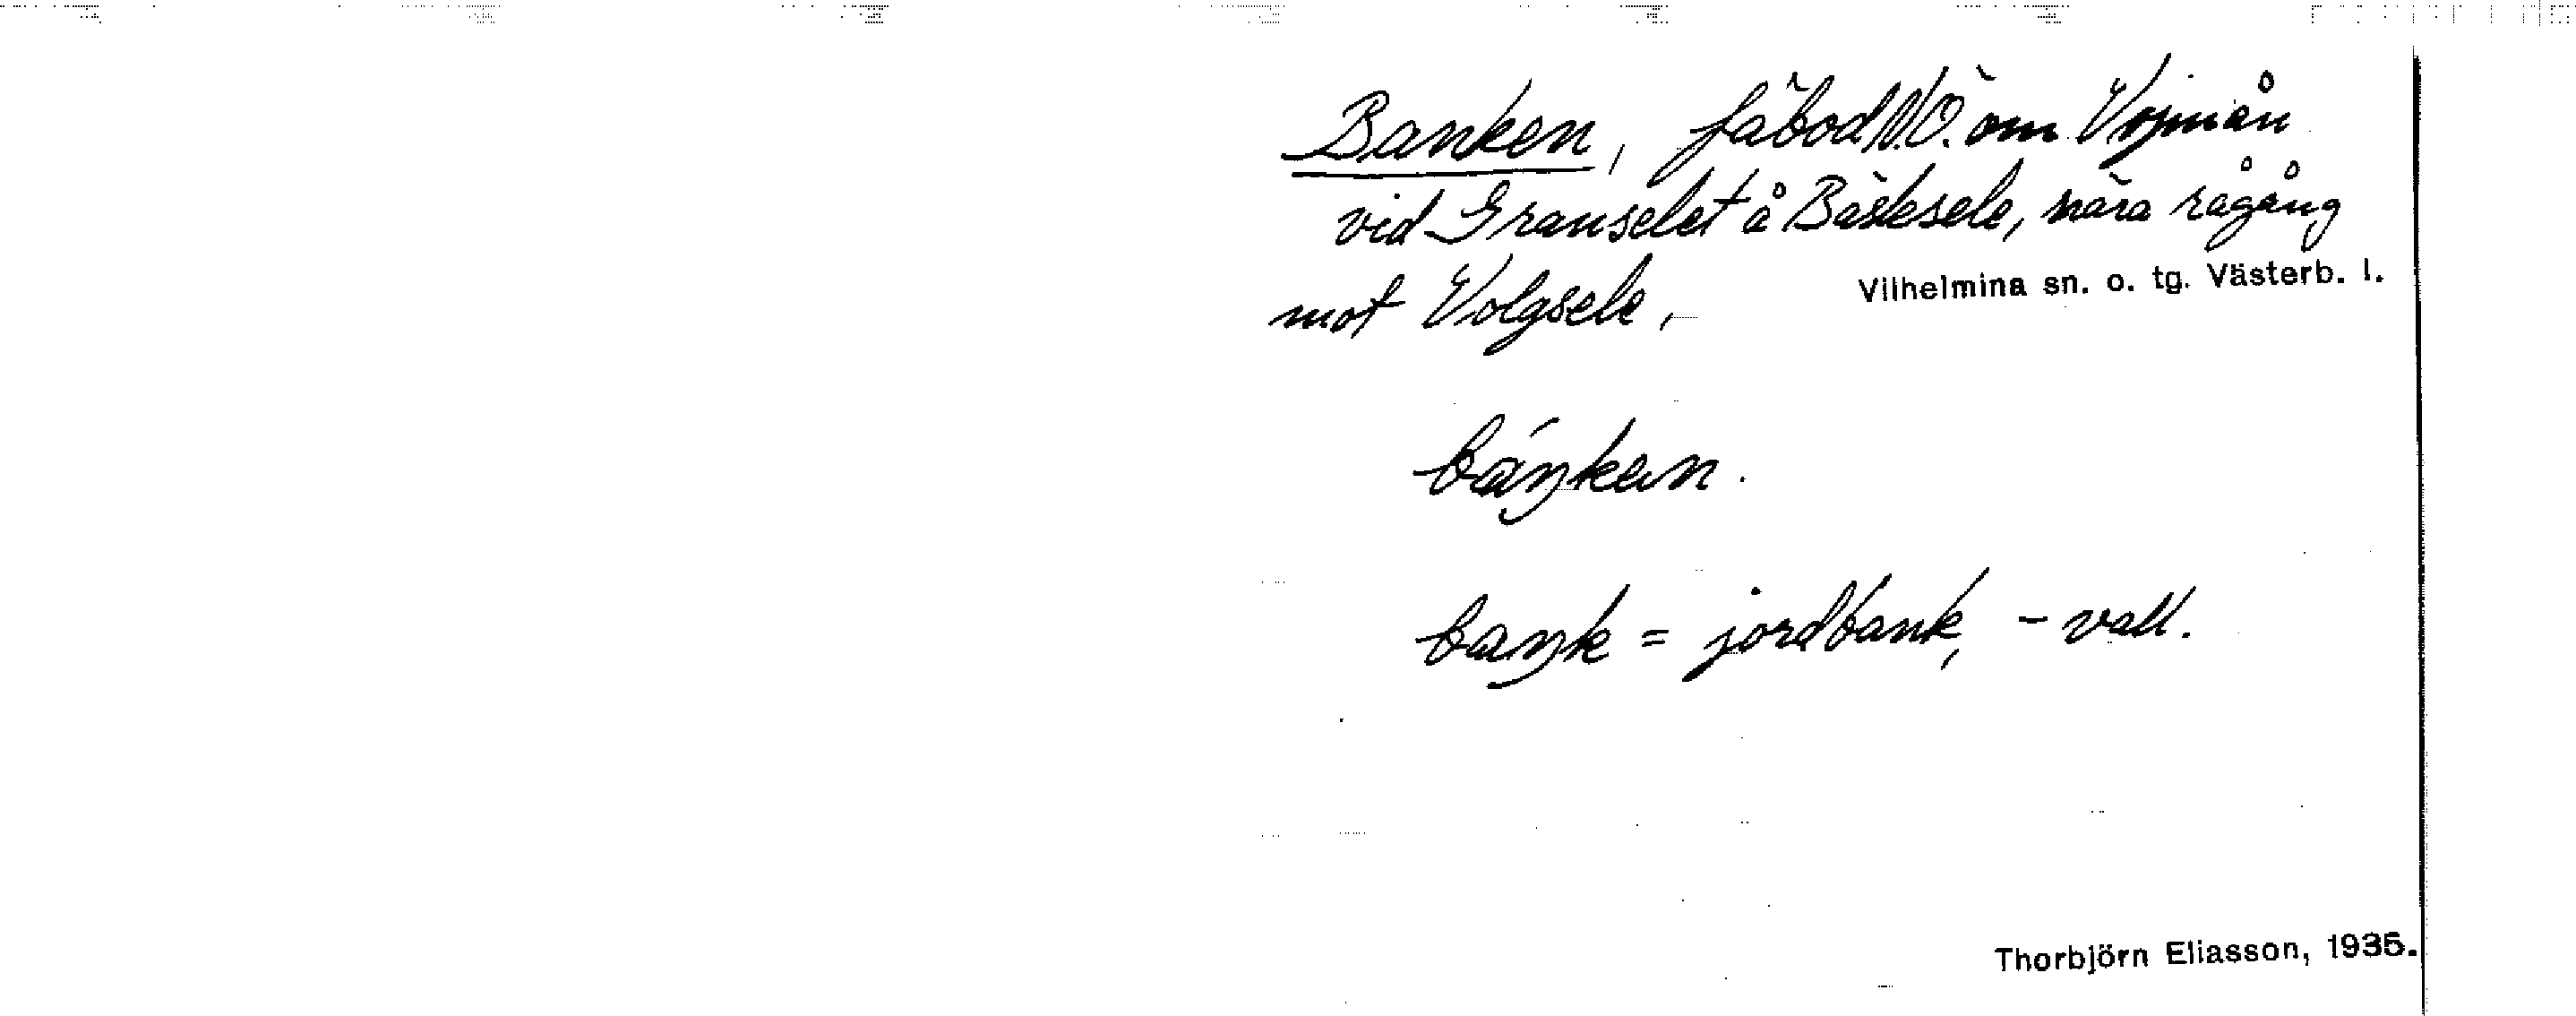 Banken, fäbod N.Ö. om Vojmån
vid Granselet å Bäsksele, nära rågång
mot Volgsele,
Vilhelmina sn. o. tg. Västerb. l.
báŋkɐn.
baŋk = jordbank, - vall.
Thorbjörn Eliasson, 1935.